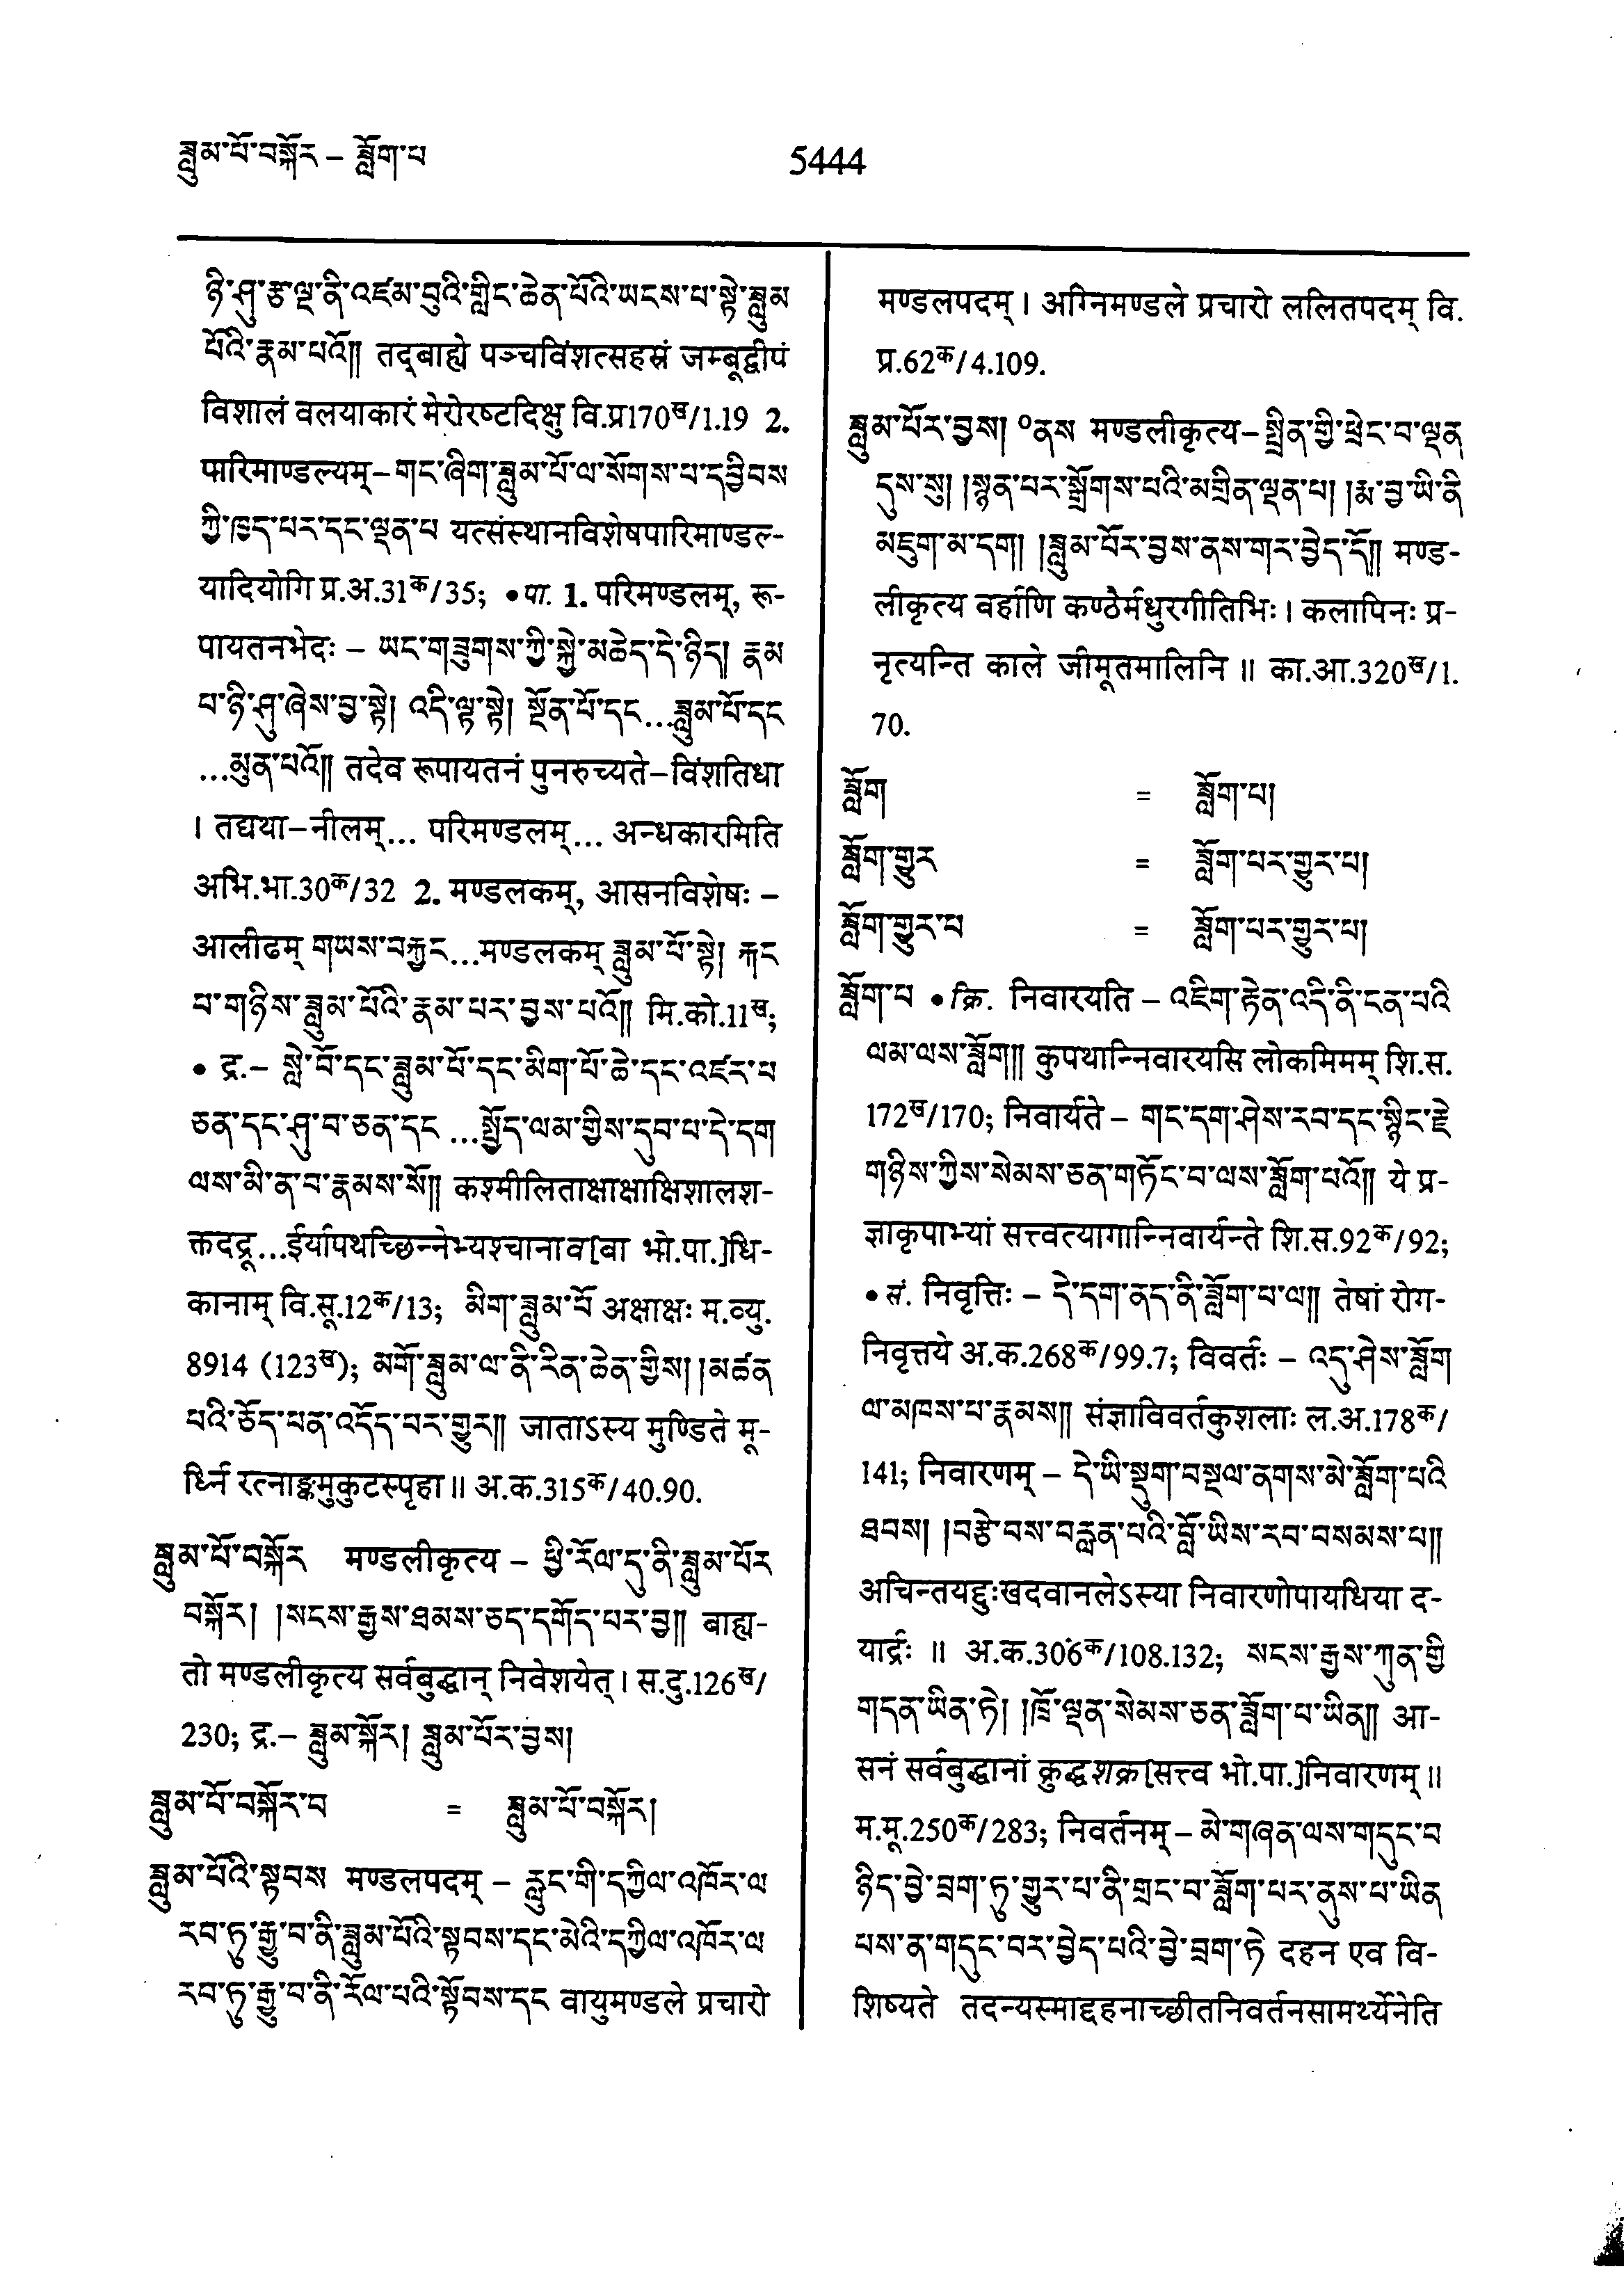 ཟླུམ་པོ་བསྐོར – ཟློག་པ
5444
ཉི་ཤུ་རྩ་ལྔ་ནི་འཛམ་བུའི་གླིང་ཆེན་པོའི་ཡངས་པ་སྟེ་ཟླུམ
པོའི་རྣམ་པའོ༎ तद्बाह्ये पञ्चविंशत्सहस्रं जम्बूद्वीपं
विशालं वलयाकारं मेरोरष्टदिक्षु वि.प्र170ख/1.19 2.
पारिमाण्डल्यम्–གང་ཞིག་ཟླུམ་པོ་ལ་སོགས་པ་དབྱིབས
ཀྱི་ཁྱད་པར་དང་ལྡན་པ यत्संस्थानविशेषपारिमाण्डल्-
यादियोगि प्र.अ.31क/35; • पा. 1. परिमण्डलम्, रू-
पायतनभेदः – ཡང་གཟུགས་ཀྱི་སྐྱེ་མཆེད་དེ་ཉིད། རྣམ
པ་ཉི་ཤུ་ཞེས་བྱ་སྟེ། འདི་ལྟ་སྟེ། སྔོན་པོ་དང...ཟླུམ་པོ་དང
...མུན་པའོ༎ तदेव रूपायतनं पुनरुच्यते–विंशतिधा
। तद्यथा–नीलम्... परिमण्डलम्... अन्धकारमिति
अभि.भा.30क/32 2. मण्डलकम्, आसनविशेषः –
आलीढम् གཡས་བརྐྱང...मण्डलकम् ཟླུམ་པོ་སྟེ། རྐང
པ་གཉིས་ཟླུམ་པོའི་རྣམ་པར་བྱས་པའོ༎ मि.को.11ख;
• द्र.– སླེ་བོ་དང་ཟླུམ་པོ་དང་མིག་པོ་ཆེ་དང་འཛར་པ
ཅན་དང་ཤུ་བ་ཅན་དང ...སྤྱོད་ལམ་གྱིས་དུབ་པ་དེ་དག
ལས་མི་ན་བ་རྣམས་སོ༎ कश्मीलिताक्षाक्षाक्षिशालश-
क्तदद्रू...ईर्यापथच्छिन्नेभ्यश्चानाव[बा भो.पा.]धि-
कानाम् वि.सू.12क/13; མིག་ཟླུམ་པོ अक्षाक्षः म.व्यु.
8914 (123ख); མགོ་ཟླུམ་ལ་ནི་རིན་ཆེན་གྱིས། །མཚན
པའི་ཅོད་པན་འདོད་པར་གྱུར༎ जाताऽस्य मुण्डिते मू-
र्ध्नि रत्नाङ्कमुकुटस्पृहा ॥ अ.क.315क/40.90.
ཟླུམ་པོ་བསྐོར मण्डलीकृत्य – ཕྱི་རོལ་དུ་ནི་ཟླུམ་པོར
བསྐོར། །སངས་རྒྱས་ཐམས་ཅད་དགོད་པར་བྱ༎ बाह्य-
तो मण्डलीकृत्य सर्वबुद्धान् निवेशयेत् । स.दु.126ख/
230; द्र.– ཟླུམ་སྐོར། ཟླུམ་པོར་བྱས།
ཟླུམ་པོ་བསྐོར་བ = ཟླུམ་པོ་བསྐོར།
ཟླུམ་པོའི་སྟབས मण्डलपदम् – རླུང་གི་དཀྱིལ་འཁོར་ལ
རབ་ཏུ་རྒྱུ་བ་ནི་ཟླུམ་པོའི་སྟབས་དང་མེའི་དཀྱིལ་འཁོར་ལ
རབ་ཏུ་རྒྱུ་བ་ནི་རོལ་པའི་སྟོབས་དང वायुमण्डले प्रचारो
मण्डलपदम् । अग्निमण्डले प्रचारो ललितपदम् वि.
प्र.62क/4.109.
ཟླུམ་པོར་བྱས། °ནས मण्डलीकृत्य–སྤྲིན་གྱི་ཕྲེང་བ་ལྡན
དུས་སུ། །སྙན་པར་སྒྲོགས་པའི་མགྲིན་ལྡན་པ། །རྨ་བྱ་ཡི་ནི
མཇུག་མ་དག། །ཟླུམ་པོར་བྱས་ནས་གར་བྱེད་དོ༎ मण्ड-
लीकृत्य वर्हाणि कण्ठैर्मधुरगीतिभिः । कलापिनः प्र-
नृत्यन्ति काले जीमूतमालिनि ॥ का.आ.320ख/1.
70.
ཟློག = ཟློག་པ།
ཟློག་གྱུར = ཟློག་པར་གྱུར་པ།
ཟློག་གྱུར་པ = ཟློག་པར་གྱུར་པ།
ཟློག་པ • क्रि. निवारयति – འཇིག་རྟེན་འདི་ནི་ངན་པའི
ལམ་ལས་ཟློག༎ कुपथान्निवारयसि लोकमिमम् शि.स.
172ख/170; निवार्यते – གང་དག་ཤེས་རབ་དང་སྙིང་རྗེ
གཉིས་ཀྱིས་སེམས་ཅན་གཏོང་བ་ལས་ཟློག་པའོ༎ ये प्र-
ज्ञाकृपाभ्यां सत्त्वत्यागान्निवार्यन्ते शि.स.92क/92;
• सं. निवृत्तिः – དེ་དག་ནད་ནི་ཟློག་པ་ལ༎ तेषां रोग-
निवृत्तये अ.क.268क/99.7; विवर्तः – འདུ་ཤེས་ཟློག
ལ་མཁས་པ་རྣམས༎ संज्ञाविवर्तकुशलाः ल.अ.178क/
141; निवारणम् – དེ་ཡི་སྡུག་བསྔལ་ནགས་མེ་ཟློག་པའི
ཐབས། །བརྩེ་བས་བརླན་པའི་བློ་ཡིས་རབ་བསམས་པ༎
अचिन्तयद्दुःखदवानलेऽस्या निवारणोपायधिया द-
यार्द्रः ॥ अ.क.306क/108.132; སངས་རྒྱས་ཀུན་གྱི
གདན་ཡིན་ཏེ། །ཁྲོ་ལྡན་སེམས་ཅན་ཟློག་པ་ཡིན༎ आ-
सनं सर्वबुद्धानां क्रुद्धशक्र[सत्त्व भो.पा.]निवारणम् ॥
म.मू.250क/283; निवर्तनम् – མེ་གཞན་ལས་གདུང་བ
ཉིད་བྱེ་བྲག་ཏུ་གྱུར་པ་ནི་གྲང་བ་ཟློག་པར་ནུས་པ་ཡིན
པས་ན་གདུང་བར་བྱེད་པའི་བྱེ་བྲག་ཏེ दहन एव वि-
शिष्यते तदन्यस्माद्दहनाच्छीतनिवर्तनसामर्थ्येनेति